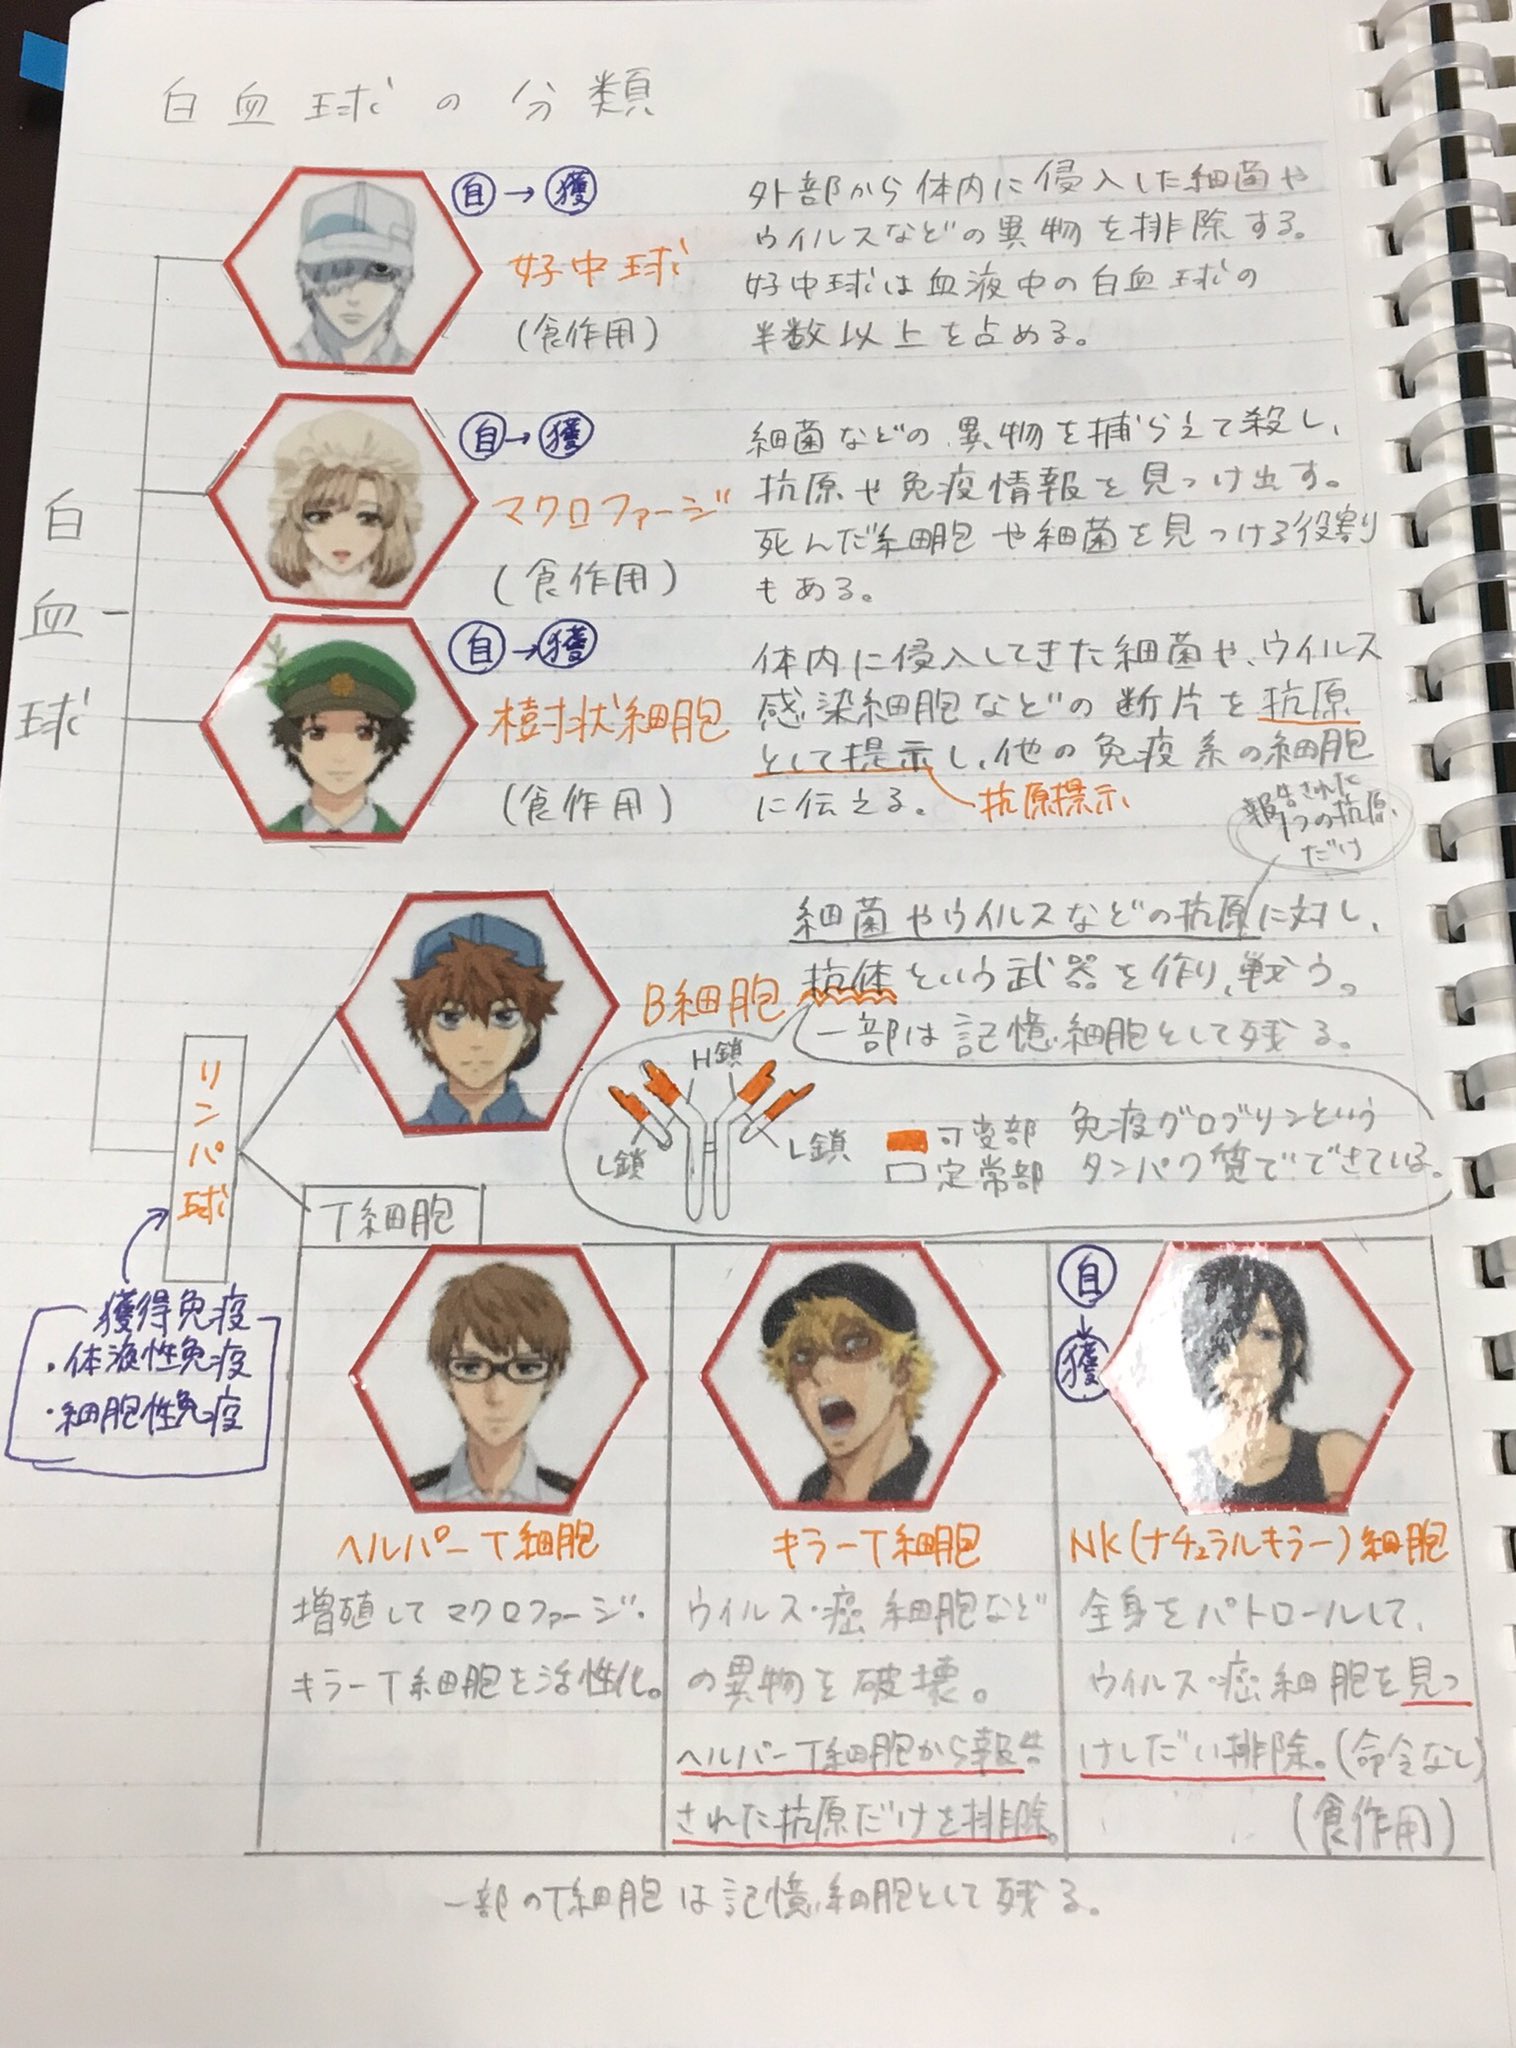 白血球の分類
白血球
自→獲
好中球
(食作用)
外部から体内に侵入した細菌や
ウイルスなどの異物を排除する。
好中球は血液中の白血球の
半数以上を占める。
自→獲
マクロファージ
(食作用)
細菌などの異物を捕らえて殺し、
抗原や免疫情報を見つけ出す。
死んだ細胞や細菌を見つける役割
もある。
自→獲
樹状細胞
(食作用)
体内に侵入してきた細菌や、ウイルス
感染細胞などの断片を抗原
として提示し、他の免疫系の細胞
に伝える。
抗原提示
報告された
1つの抗原
だけ
B細胞
細菌やウイルスなどの抗原に対し、
抗体という武器を作り、戦う。
一部は記憶細胞として残る。
H鎖
L鎖
L鎖
可変部
定常部
免疫グロブリンという
タンパク質でできている。
リンパ球
獲得免疫
・体液性免疫
・細胞性免疫
T細胞
ヘルパーT細胞
増殖してマクロファージ・
キラーT細胞を活性化。
キラーT細胞
ウイルス・癌細胞など
の異物を破壊。
ヘルパーT細胞から報告
された抗原だけを排除。
自→獲
NK(ナチュラルキラー)細胞
全身をパトロールして、
ウイルス・癌細胞を見つ
けしだい排除。(命令なし)
(食作用)
一部のT細胞は記憶細胞として残る。